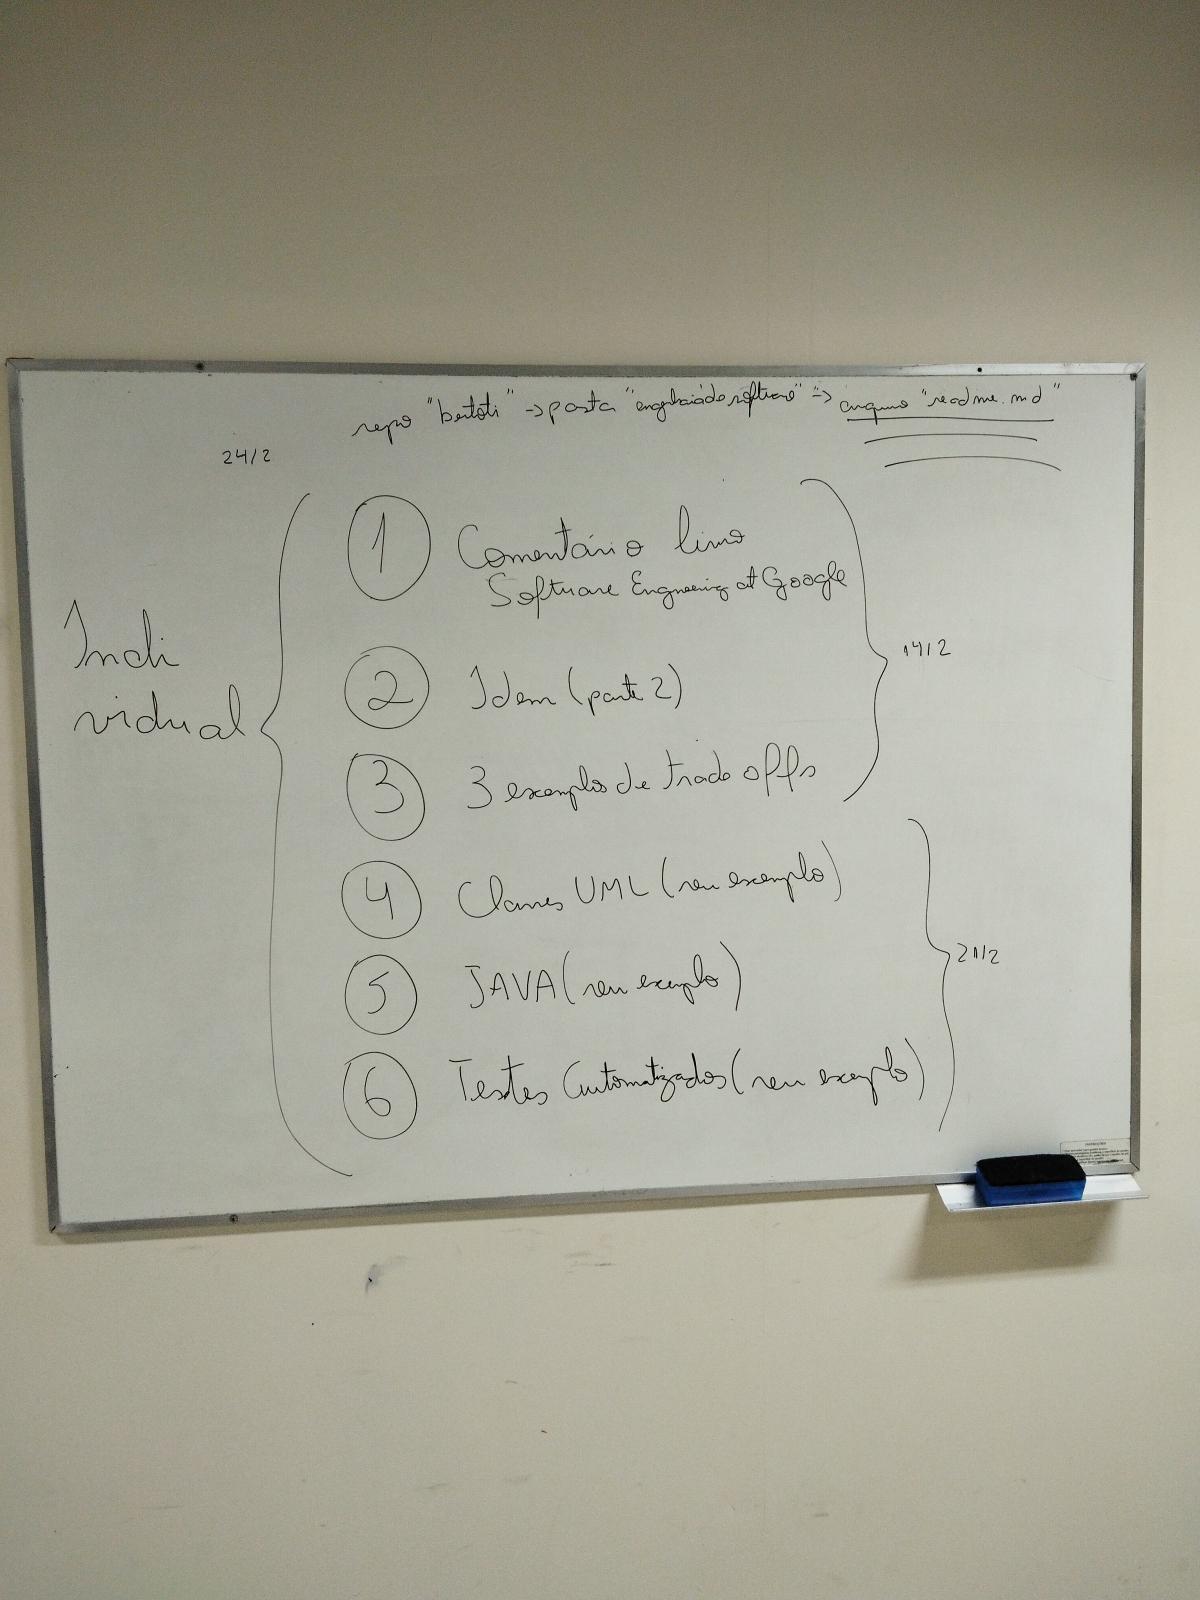 repo "bertoti" -> pasta "engenhariadesoftware" -> arquivo "readme.md"
24/2
Indi
vidual
1 Comentário livro
Software Engineering at Google
2 Idem (parte 2)
3 3 exemplos de trade offs
14/2
4 Classes UML (seu exemplo)
5 JAVA (seu exemplo)
21/2
6 Testes Automatizados (seu exemplo)